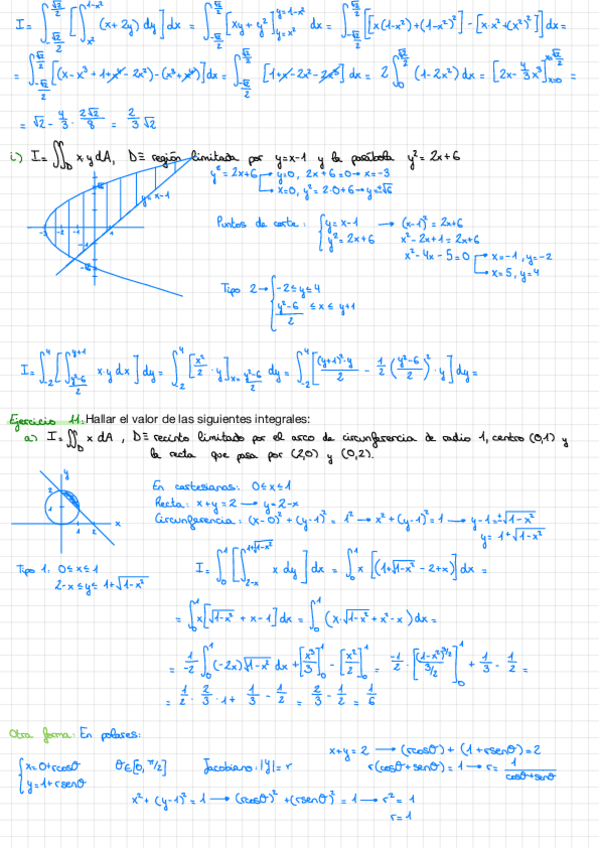 I = ∫_{-√2/2}^{√2/2} [∫_{x²}^{1-x²} (x+2y) dy] dx = ∫_{-√2/2}^{√2/2} [xy + y²]_{y=x²}^{y=1-x²} dx = ∫_{-√2/2}^{√2/2} [[x(1-x²)+(1-x²)²] - [x·x²+(x²)²]] dx =
= ∫_{-√2/2}^{√2/2} [(x-x³+1+x⁴-2x²) - (x³+x⁴)] dx = ∫_{-√2/2}^{√2/2} [1+x-2x²-2x³] dx = 2∫_0^{√2/2} (1-2x²) dx = [2x - 4/3 x³]_{x=0}^{x=√2/2} =
= √2 - 4/3 · 2√2/8 = 2/3 √2
i) I = ∬_D x·y dA, D ≡ región limitada por y=x-1 y la parábola y²=2x+6
y² = 2x+6 → y=0, 2x+6=0 → x=-3
→ x=0, y²=2·0+6 → y=±√6
y=x-1
√6
-3 -2 -1 1
-√6
Puntos de corte: { y=x-1 → (x-1)² = 2x+6
y²=2x+6 x²-2x+1=2x+6
x²-4x-5=0 → x=-1, y=-2
→ x=5, y=4
Tipo 2 → { -2≤y≤4
(y²-6)/2 ≤ x ≤ y+1
I = ∫_{-2}^4 [∫_{(y²-6)/2}^{y+1} x·y dx] dy = ∫_{-2}^4 [x²/2 · y]_{x=(y²-6)/2}^{y+1} dy = ∫_{-2}^4 [(y+1)²·y/2 - 1/2 ((y²-6)/2)² · y] dy =
Ejercicio 11: Hallar el valor de las siguientes integrales:
a) I = ∬_D x dA, D ≡ recinto limitado por el arco de circunferencia de radio 1, centro (0,1) y
la recta que pasa por (2,0) y (0,2).
y
2
1
1 2 x
En cartesianas: 0≤x≤1
Recta: x+y=2 → y=2-x
Circunferencia: (x-0)²+(y-1)²=1² → x²+(y-1)²=1 → y-1=±√(1-x²)
y=1+√(1-x²)
Tipo 1. 0≤x≤1
2-x≤y≤1+√(1-x²)
I = ∫_0^1 [∫_{2-x}^{1+√(1-x²)} x dy] dx = ∫_0^1 x [(1+√(1-x²) - 2+x)] dx =
= ∫_0^1 x[√(1-x²) + x-1] dx = ∫_0^1 (x·√(1-x²) + x²-x) dx =
= 1/-2 ∫_0^1 (-2x)√(1-x²) dx + [x³/3]_0^1 - [x²/2]_0^1 = -1/2 · [(1-x²)^{3/2}/(3/2)]_0^1 + 1/3 - 1/2 =
= 1/2 · 2/3 · 1 + 1/3 - 1/2 = 2/3 - 1/2 = 1/6
Otra forma: En polares:
{ x=0+rcosθ θ∈[0, π/2] Jacobiano: |J|=r
y=1+rsenθ
x+y=2 → (rcosθ) + (1+rsenθ)=2
r(cosθ+senθ)=1 → r = 1/(cosθ+senθ)
x²+(y-1)²=1 → (rcosθ)²+(rsenθ)²=1 → r²=1
r=1